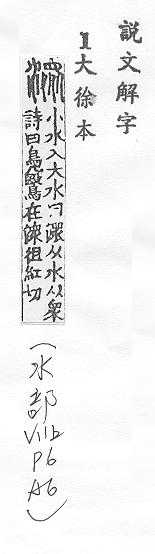 説文解字
1大徐本
潨 小水入大水曰潨从水从眾
詩曰鳧鷖在潨徂紅切
(水部 V11b P6 A6)